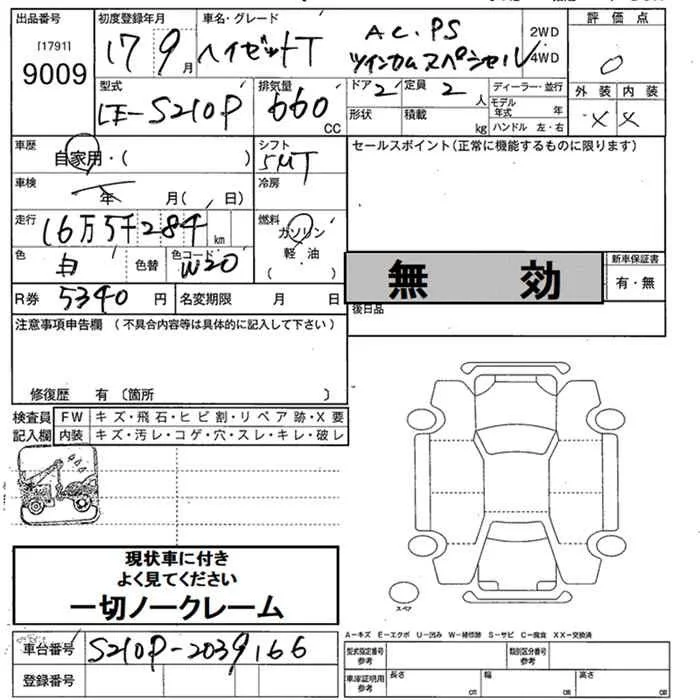 出品番号 初度登録年月 車名・グレード 評価点
[1791] 9009 17 9月 ハイゼットT AC. PS ツインカムスペシャル 2WD 4WD 0
型式 排気量 ドア 2 定員 2人 ディーラー・並行 外装 内装
LE-S210P 660 CC 形状 積載 kg モデル年式 年 ハンドル 左・右 X X
車歴 自家用・( ) シフト 5MT セールスポイント(正常に機能するものに限ります)
車検 年 月( 日) 冷房
走行 16万5千284km 燃料 ガソリン 軽油 ( )
色 白 色替 色コード W20 無効 新車保証書 有・無
R券 5340円 名変期限 月 日 後日品
注意事項申告欄 (不具合内容等は具体的に記入して下さい)
修復歴 有 〔箇所 〕
検査員 FW キズ・飛石・ヒビ割・リペア跡・X要
記入欄 内装 キズ・汚レ・コゲ・穴・スレ・キレ・破レ
現状車に付き
よく見てください
一切ノークレーム
スペア
A-キズ E-エクボ U-凹み W-補修跡 S-サビ C-腐食 XX-交換済
車台番号 S210P-2039166 型式指定番号 参考 類別区分番号 参考
登録番号 車庫証明用 参考 長さ cm 幅 cm 高さ cm